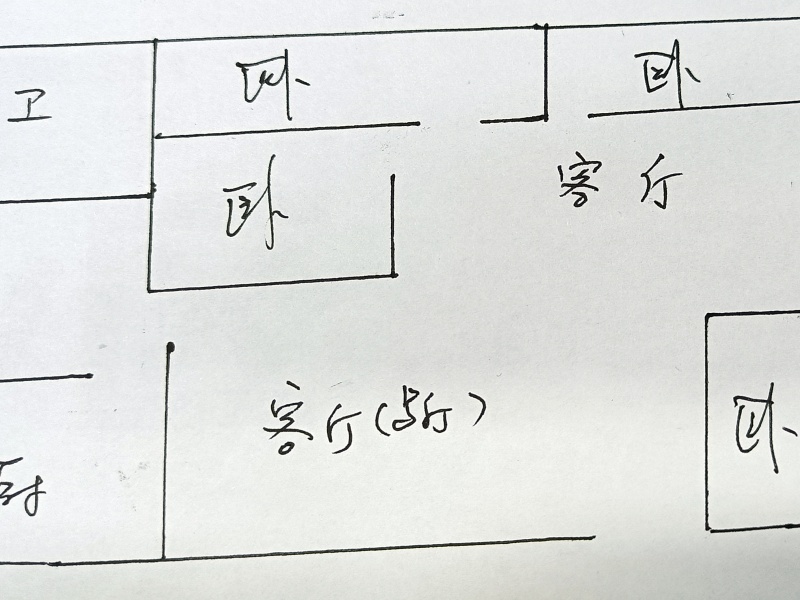 卫
卧
卧
卧
客厅
客厅(餐厅)
卧
厨